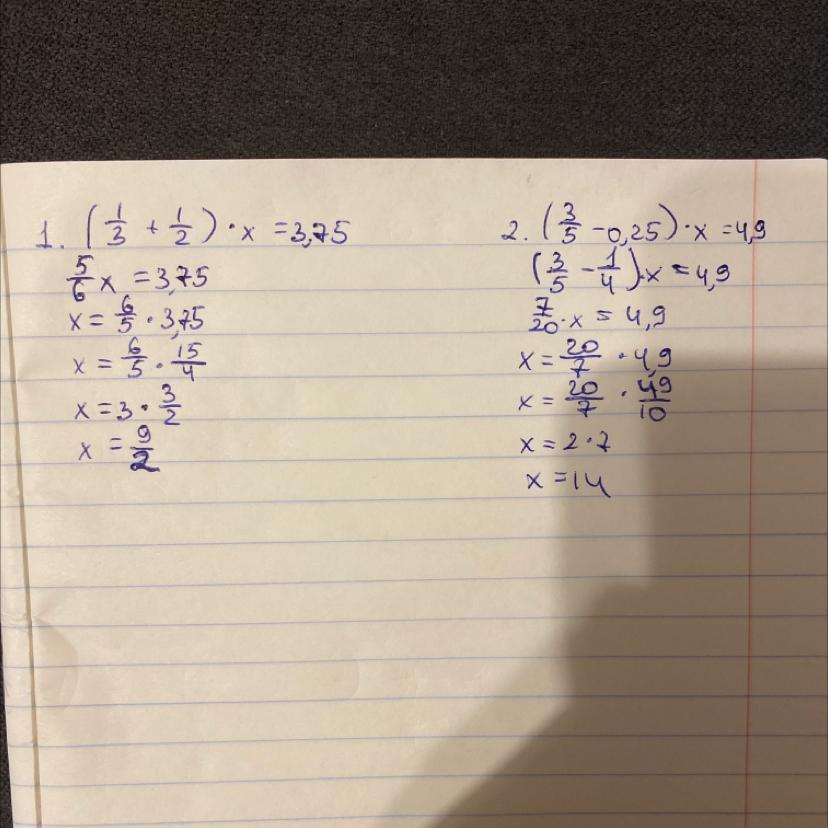 1. (1/3 + 1/2) · x = 3,75
5/6 x = 3,75
x = 6/5 · 3,75
x = 6/5 · 15/4
x = 3 · 3/2
x = 9/2
2. (3/5 - 0,25) · x = 4,9
(3/5 - 1/4) · x = 4,9
7/20 · x = 4,9
x = 20/7 · 4,9
x = 20/7 · 49/10
x = 2 · 7
x = 14